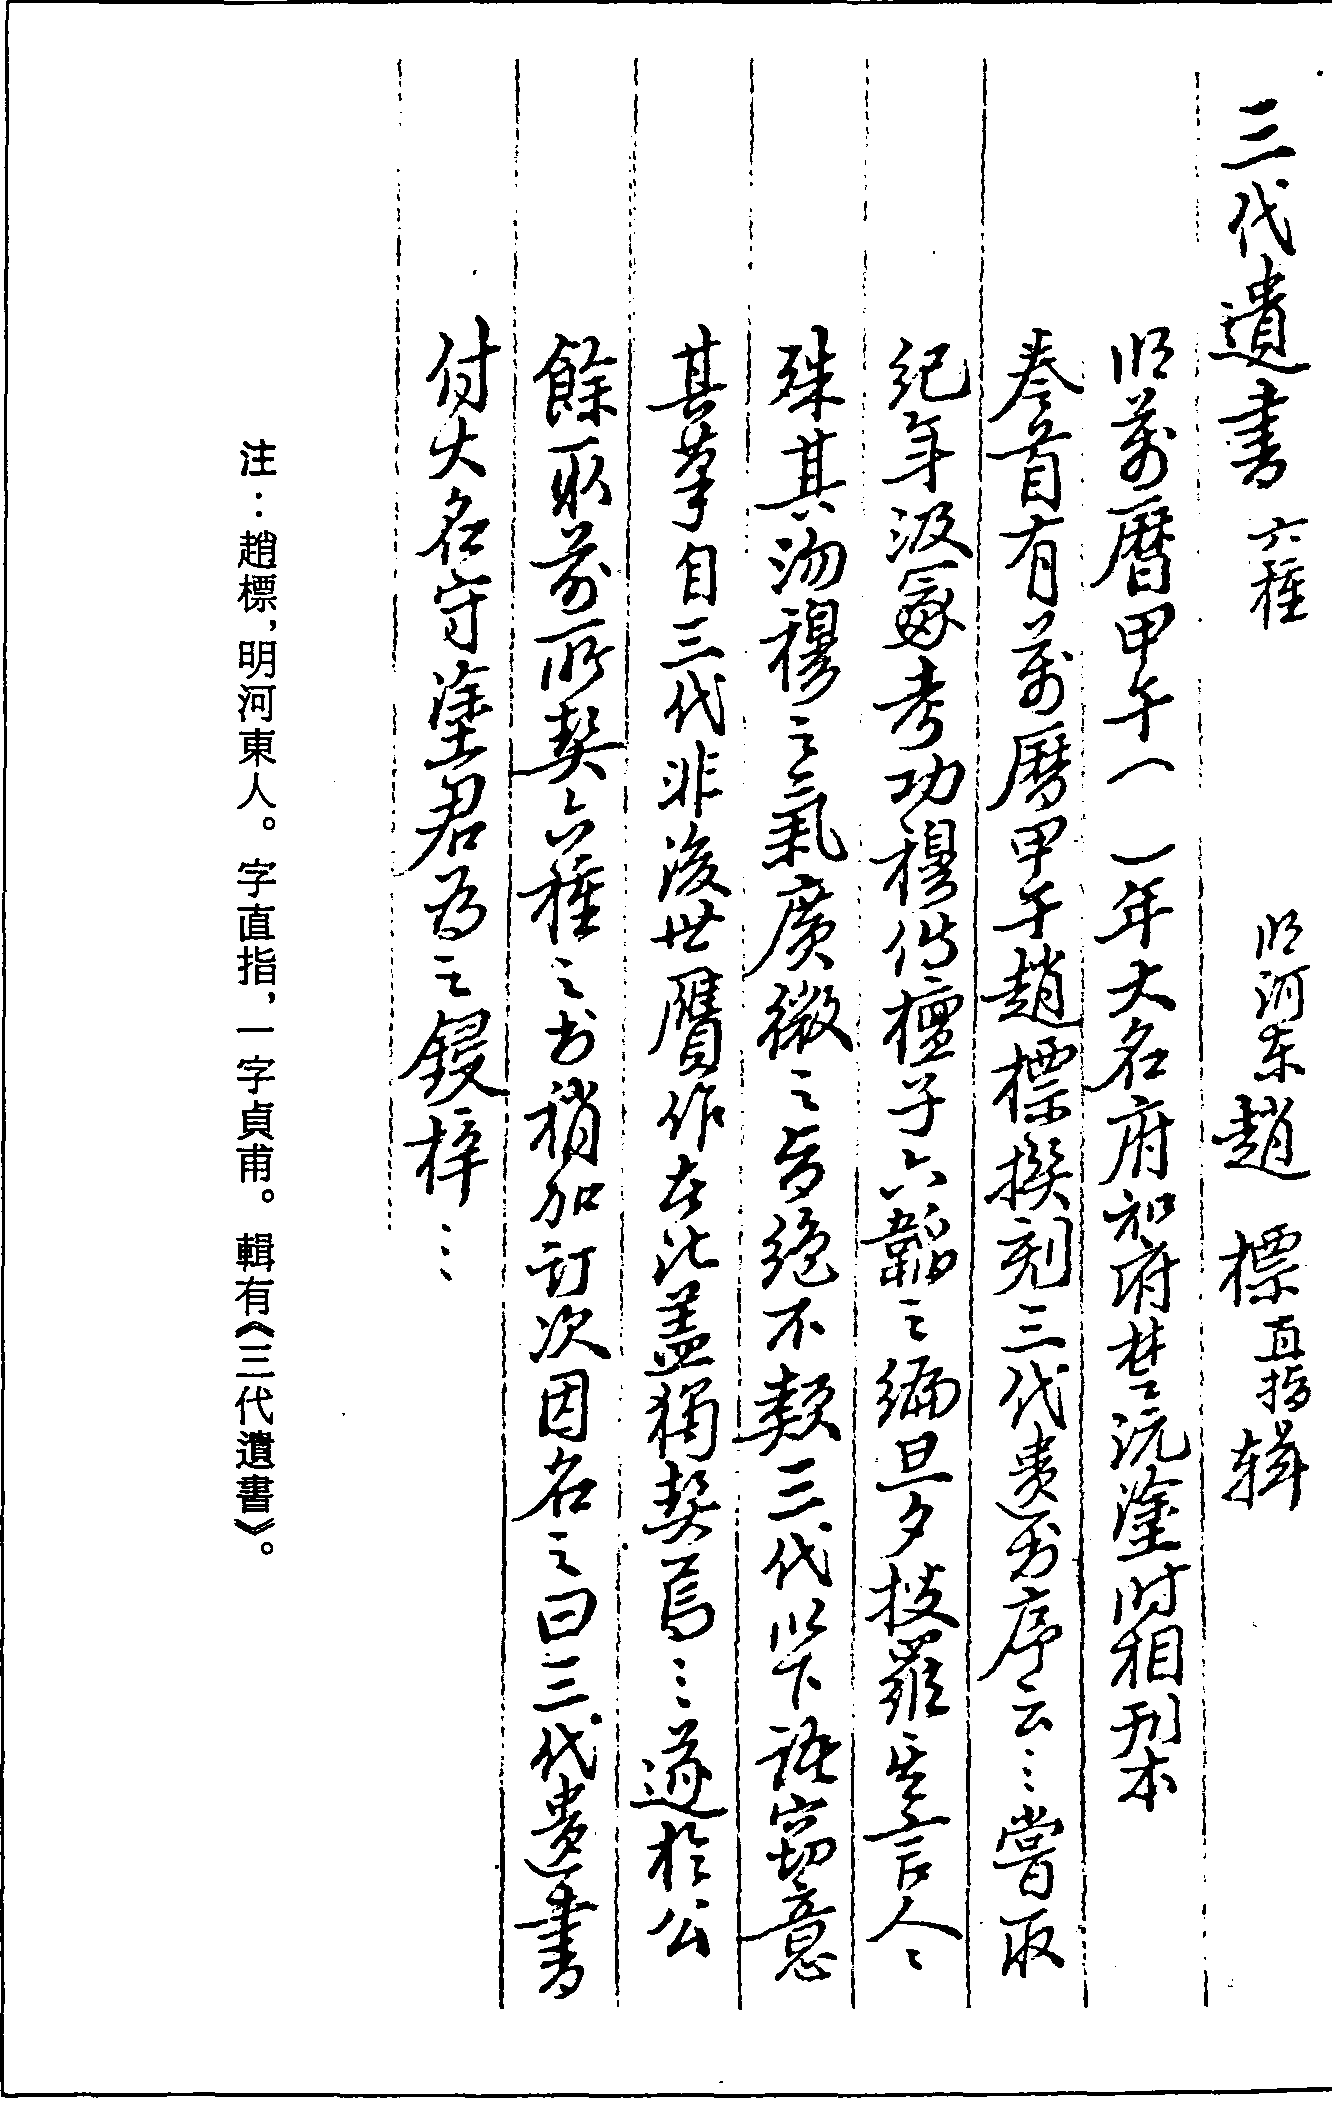 三代遺書 六種 明河东趙 標直指辑
明萬曆甲午 一年大名府知府楚沅塗时相刊本
卷首有萬曆甲午趙標撰刻三代遺书序云〻嘗取
紀年汲冢考功穆传檀子六韜之编旦夕披羅其言人〻
殊其沕穆之氣廣微之旨绝不類三代以下語窃意
其草自三代非後世贋作在汔盖獨契焉〻遂於公
餘取前所契六種之书稍加訂次因名之曰三代遺書
付大名守塗君为之鋟梓〻
注：趙標，明河東人。字直指，一字貞甫。輯有《三代遺書》。